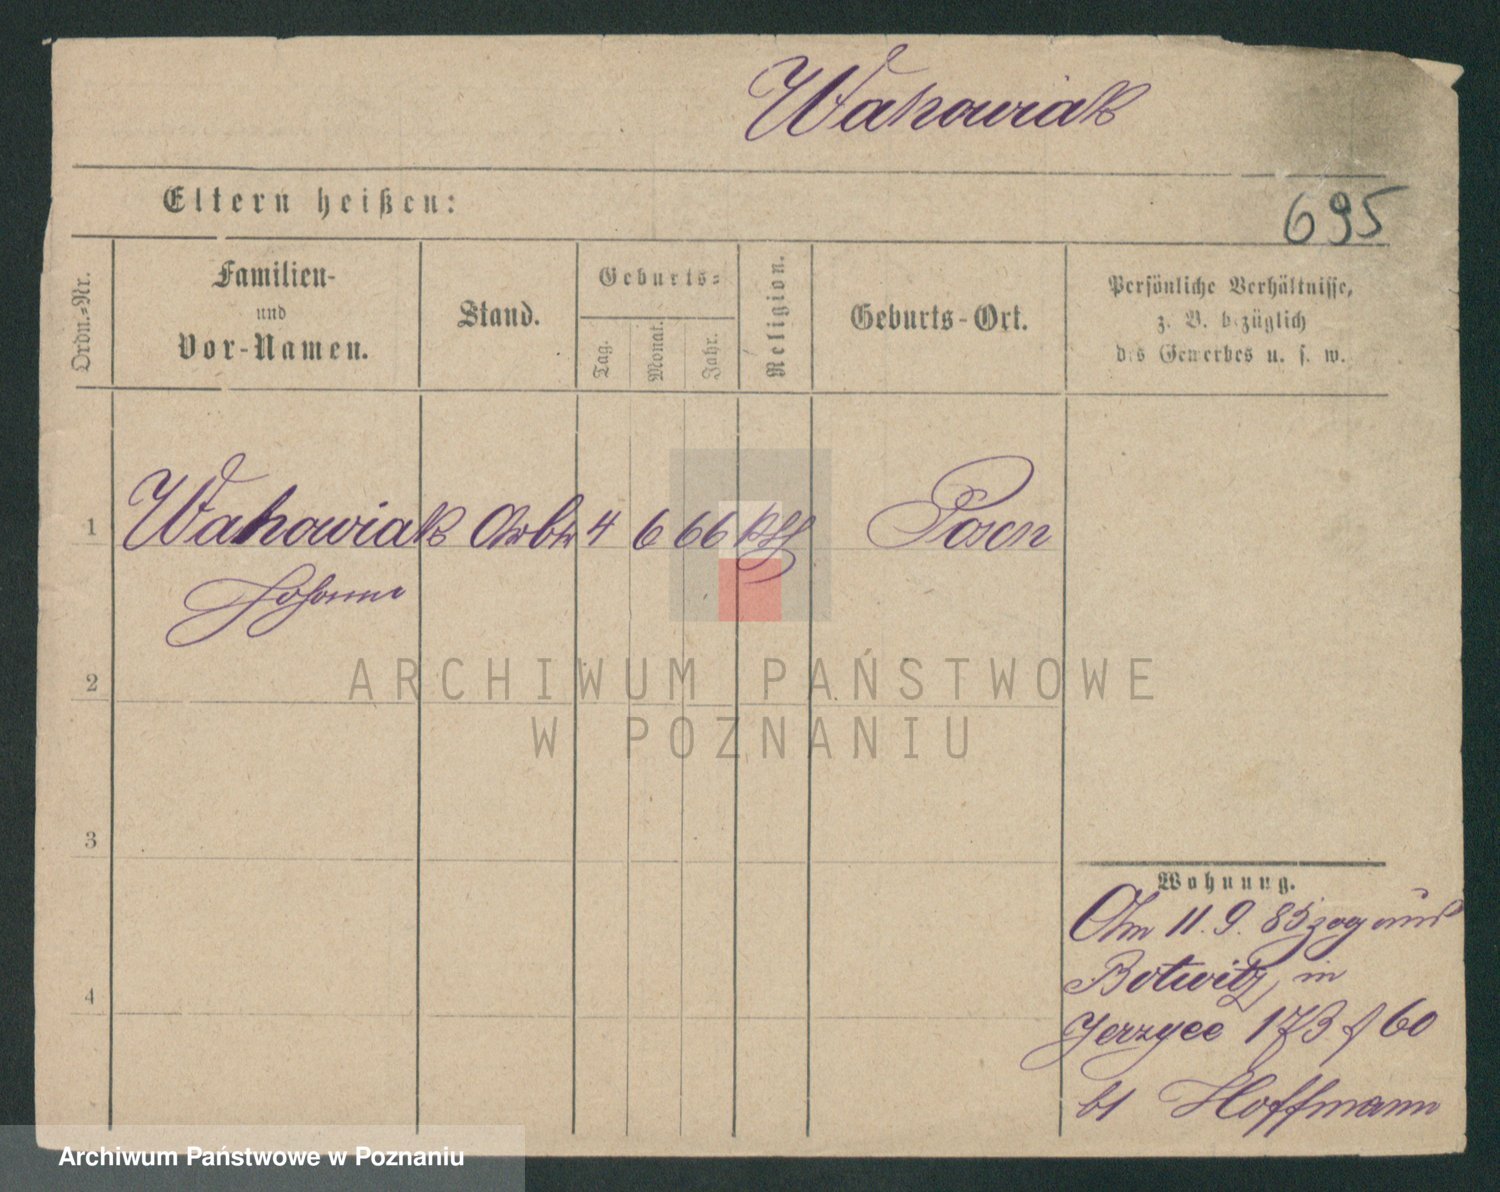 Wahowiak
Eltern heißen:
695
Ordn.-Nr.
Familien-
und
Vor-Namen.
Stand.
Geburts-
Tag.
Monat.
Jahr.
Religion.
Geburts-Ort.
Persönliche Verhältnisse,
z. B. bezüglich
des Gewerbes u. s. w.
1 Wahowiak Arbtr 4 6 66 kth Posen
Johann
2
3
4
Wohnung.
Am 11. 9. 85 zog aus
Botwitz, in
173 f 60
bt Hoffmann
ARCHIWUM PAŃSTWOWE
W POZNANIU
Archiwum Państwowe w Poznaniu